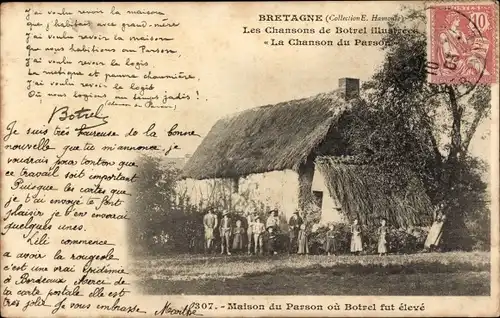 BRETAGNE (Collection E. Hamonic)
Les Chansons de Botrel illustrées
« La Chanson du Parson
J'ai voulu revoir la maison
que j'habitais avec grand-mère
J'ai voulu revoir la maison
J'ai voulu revoir
que nous habitions au Parson
J'ai voulu revoir la
La rustique et pauvre chaumière
Où nous logions au temps jadis !
(Chanson du Parson)
Botrel
10
Je suis très heureuse de la bonne
nouvelle que tu m'annonce je
voudrais pas tonton que
ce travail soit important
Puisque les cartes que
je t'ai envoyé te font
plaisir je t'en enverrai
quelques unes.
Lili commence
a avoir la rougeole
c'est une vrai épidémie
à Bordeaux Merci de
ta carte postale elle est
très jolie Je vous embrasse Marthe
1307. - Maison du Parson où Botrel fut élevé